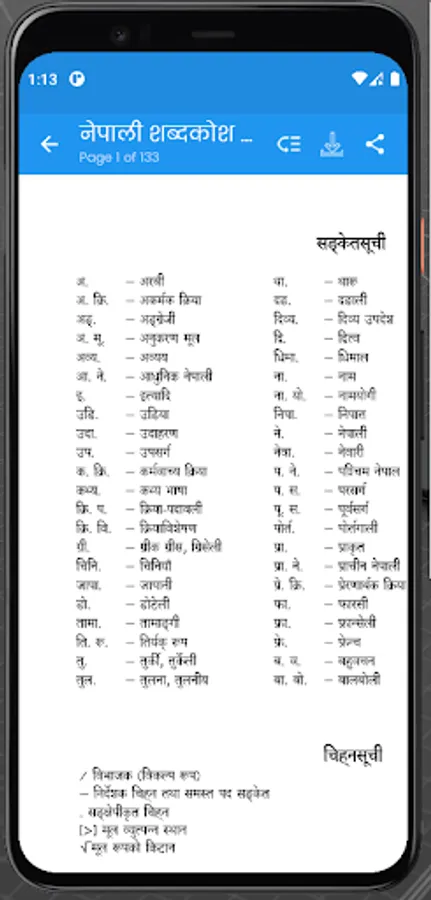 1:13
नेपाली शब्दकोश ...
Page 1 of 133
सङ्केतसूची
अ. – अरबी
अ. क्रि. – अकर्मक क्रिया
अङ्. – अङ्ग्रेजी
अ. मू. – अनुकरण मूल
अव्य. – अव्यय
आ. ने. – आधुनिक नेपाली
इ. – इत्यादि
उडि. – उडिया
उदा. – उदाहरण
उप. – उपसर्ग
क. क्रि. – कर्मवाच्य क्रिया
कथ्य. – कथ्य भाषा
क्रि. प. – क्रिया-पदावली
क्रि. वि. – क्रियाविशेषण
ग्री. – ग्रीक ग्रीस, ग्रिसेली
चिनि. – चिनियाँ
जापा. – जापानी
डो. – डोटेली
तामा. – तामाङ्गी
ति. रू. – तिर्यक् रूप
तु. – तुर्की, तुर्केली
तुल. – तुलना, तुलनीय
था. – थारू
दड. – दडाली
दिव्य. – दिव्य उपदेश
द्वि. – द्वित्व
धिमा. – धिमाल
ना. – नाम
ना. यो. – नामयोगी
निपा. – निपात
ने. – नेपाली
नेवा. – नेवारी
प. ने. – पश्चिम नेपाल
प. स. – परसर्ग
पू. स. – पूर्वसर्ग
पोर्त. – पोर्तगाली
प्रा. – प्राकृत
प्रा. ने. – प्राचीन नेपाली
प्रे. क्रि. – प्रेरणार्थक क्रिया
फा. – फारसी
फ्रा. – फ्रान्सेली
फ्रे. – फ्रेन्च
ब. व. – बहुवचन
बा. बो. – बालबोली
चिह्नसूची
/ विभाजक (विकल्प रूप)
– निर्देशक चिह्न तथा समस्त पद सङ्केत
. सङ्क्षेपीकृत चिह्न
[>] मूल व्युत्पन्न स्थान
√ मूल रूपको किटान